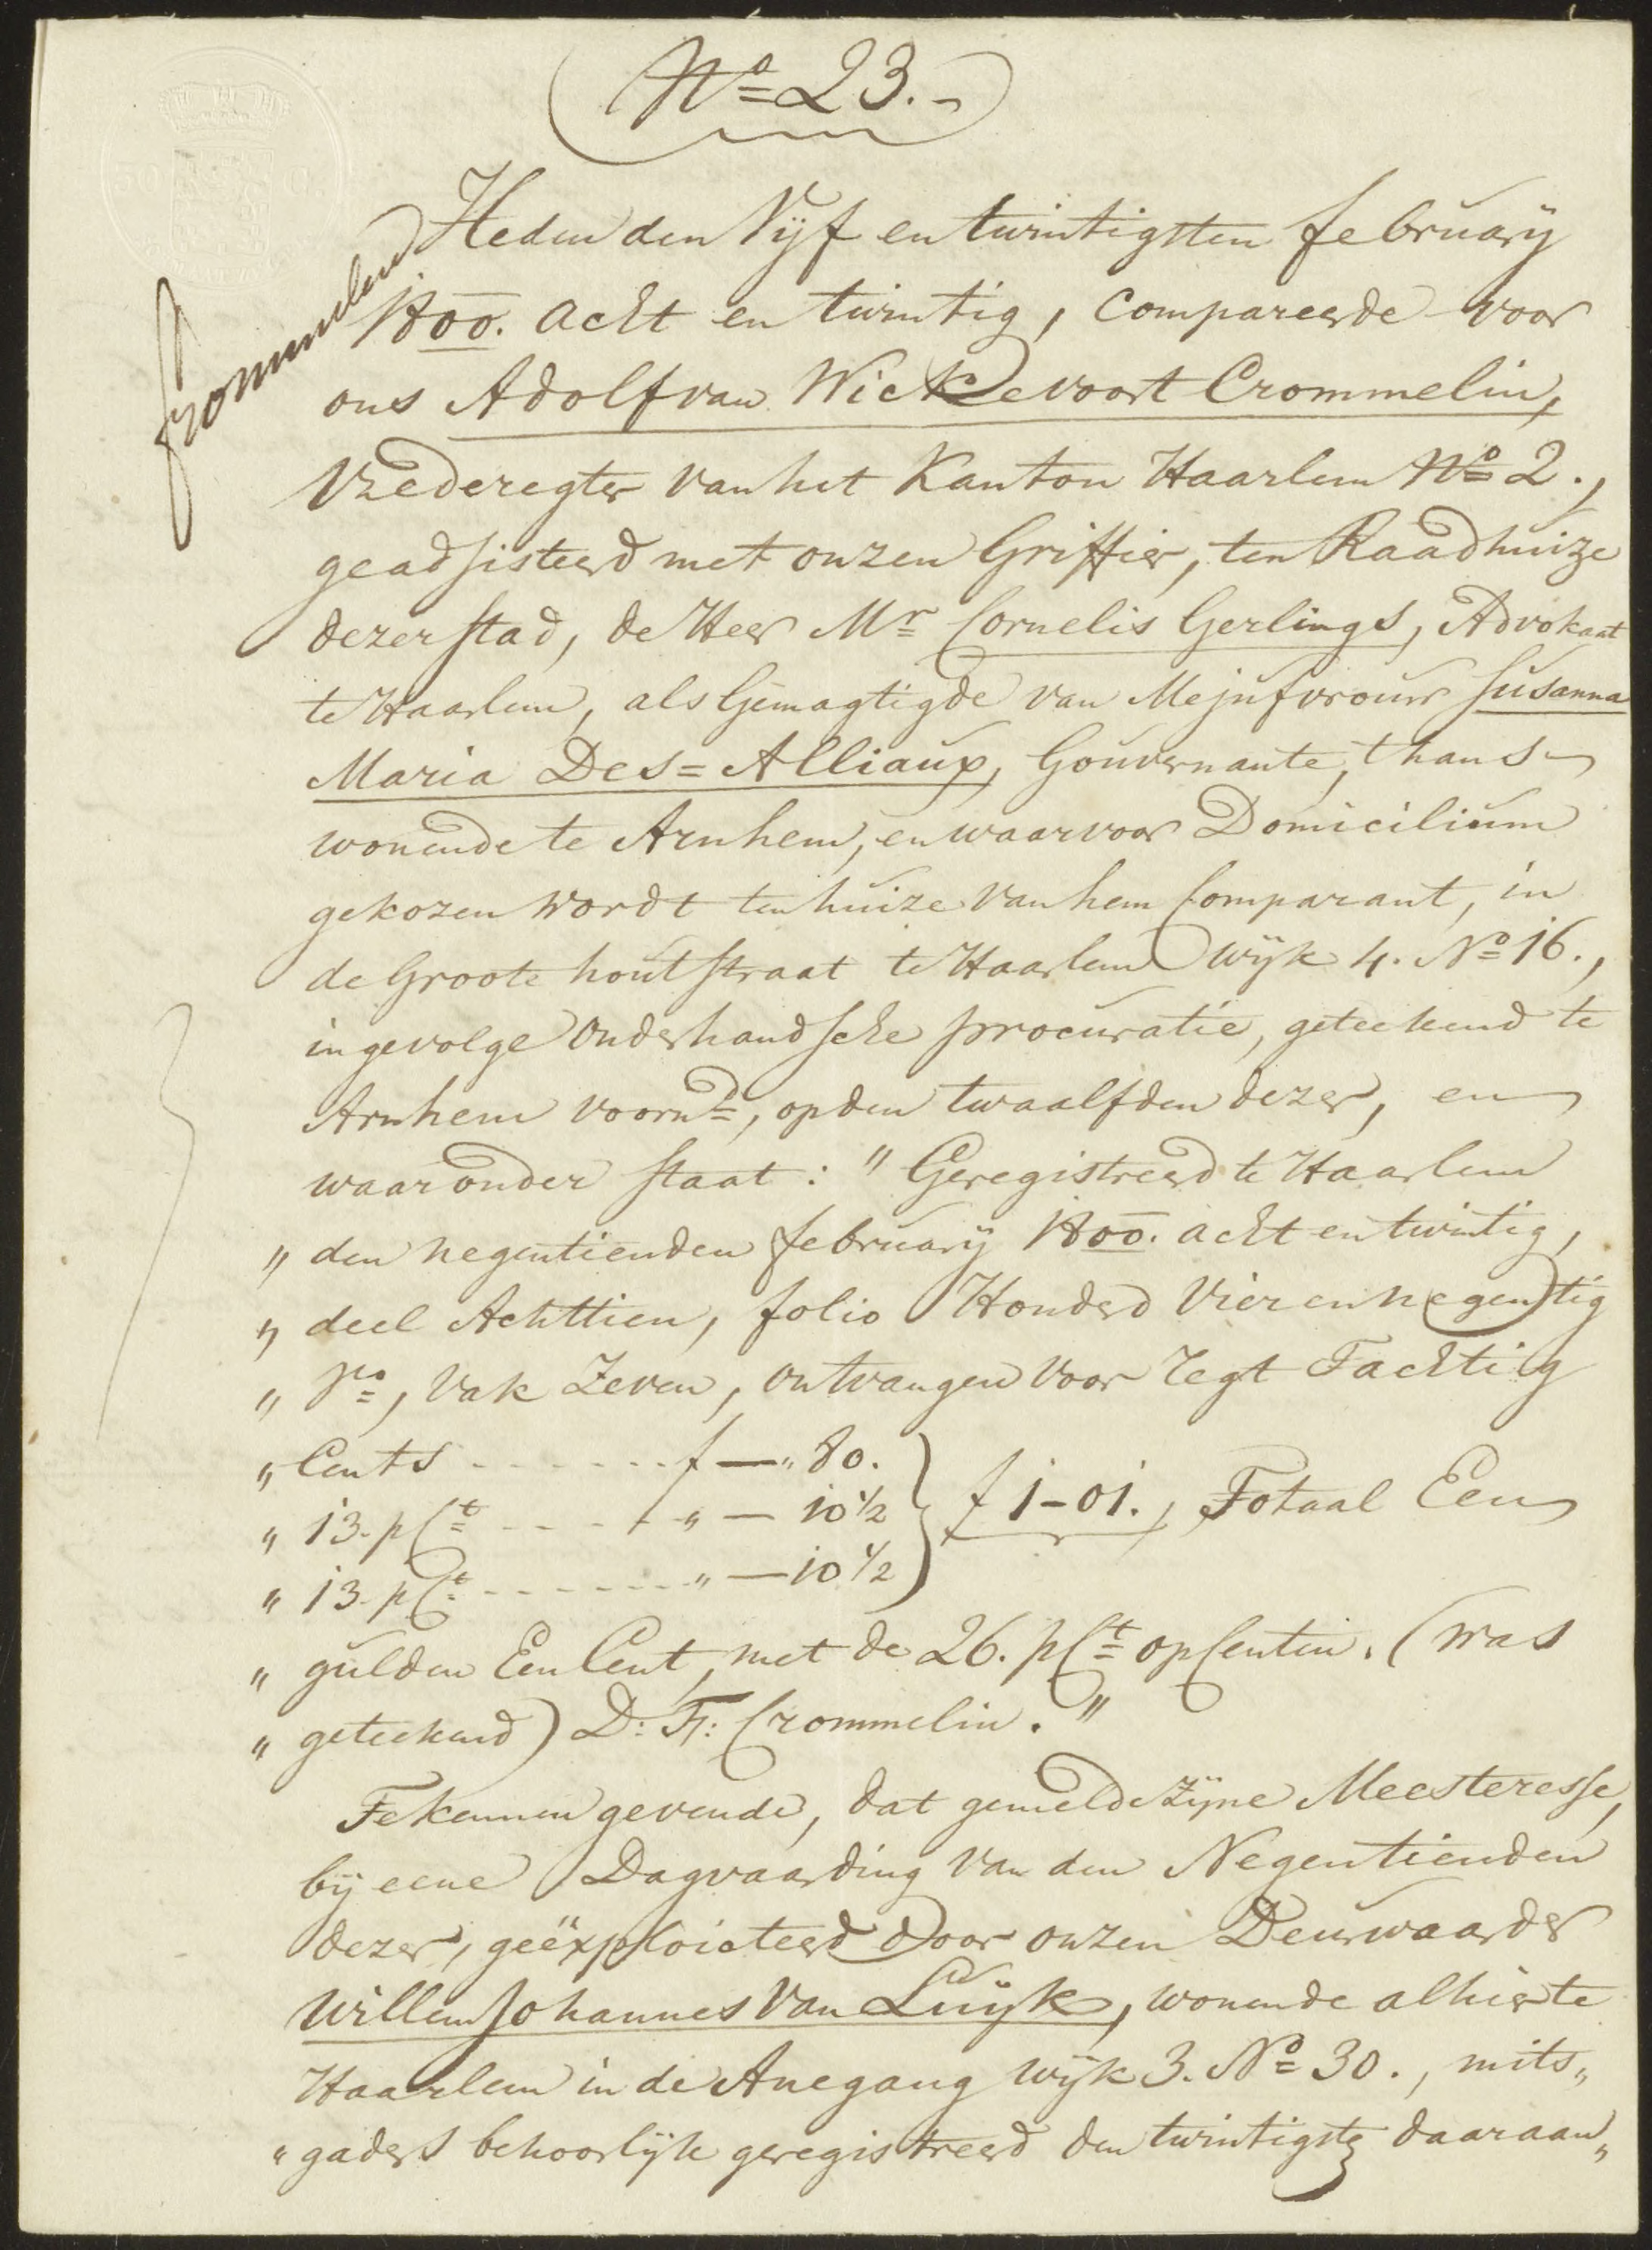 No 23.
Crommelin
Heden den Vijf en twintigsten february
1800. acht en twintig, Compareerde voor
ons Adolf van Wickevoort Crommelin,
Vrederegter van het Kanton Haarlem No 2.,
geadsisteerd met onzen Griffier, ten Raadhuize
dezer stad, de Heer Mr Cornelis Gerlings, Advokaat
te Haarlem, als Gemagtigde van Mejufvrouw Susanna
Maria Des=Alliaux, Gouvernante, thans
wonende te Arnhem, en waarvoor Domicilium
gekozen wordt ten huize van hem Comparant, in
de Groote houtstraat te Haarlem wijk 4. No 16.,
ingevolge onderhandsche procuratie, geteekend te
Arnhem voornd, op den twaalfden dezer, en
waaronder staat: "Geregistreerd te Haarlem
" den negentienden february 1800. acht en twintig,
" deel Achttien, folio Honderd Vier en negentig
" Vo, Vak Zeven, ontvangen voor regt Tachtig
" Cents - - - - - - - f —"80.
" 13. pCt - - - - - " — 10 1/2
" 13. pCt - - - - - - - " — 10 1/2
f 1-01., Totaal Een
" gulden Een Cent, met de 26. pCt opCenten. (was
" geteekend) D: F: Crommelin."
Te kennen gevende, dat gemelde zijne Meesteresse,
bij eene Dagvaarding van den Negentienden
dezer, geëxploicteerd door onzen Deurwaarder
Willem Johannes van Luijk, wonende alhier te
Haarlem in de Anegang wijk 3. No 30., mits„
„gaders behoorlijk geregistreerd den twintigste daaraan„